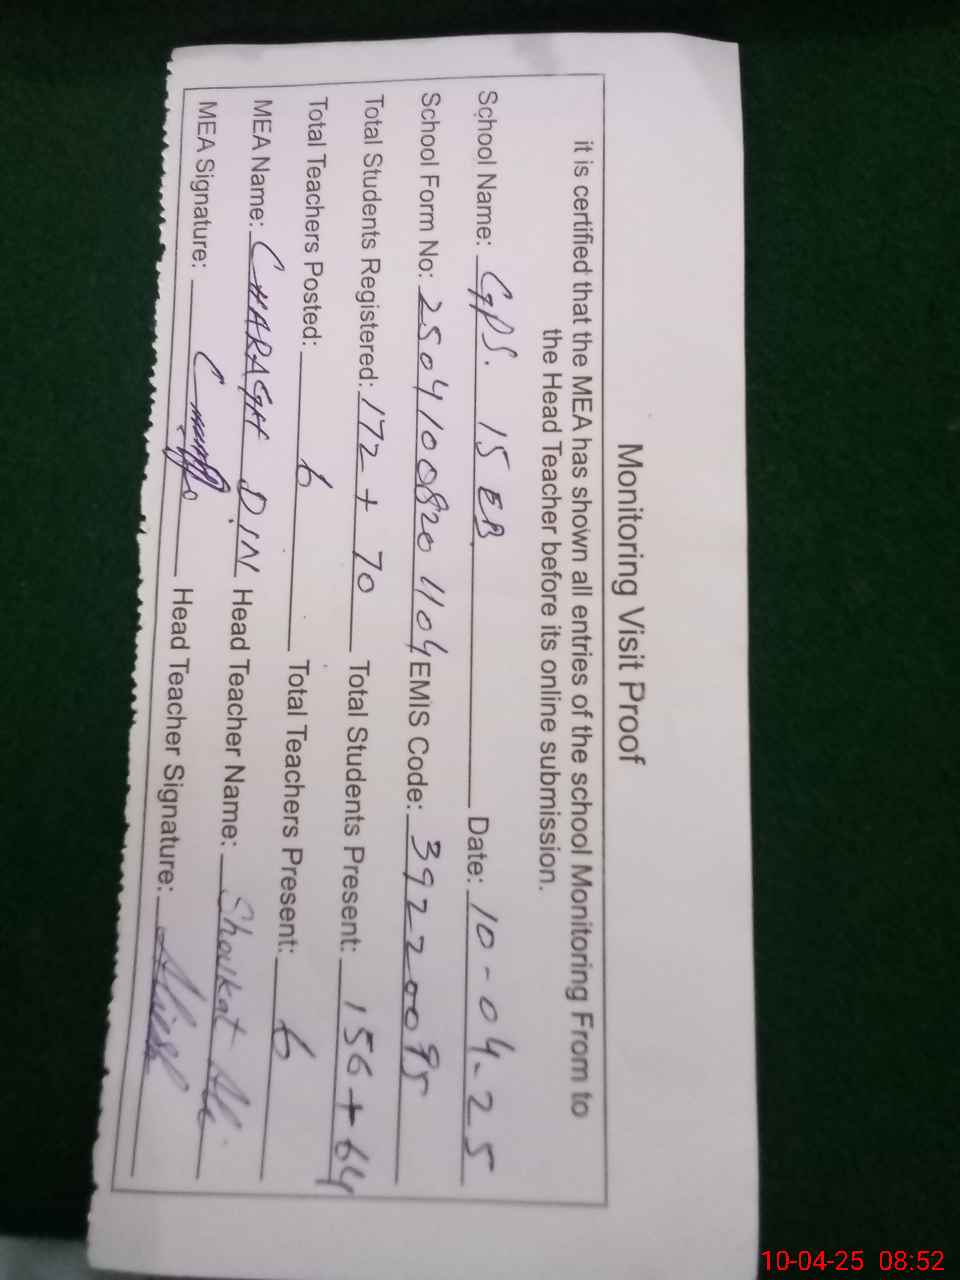 Monitoring Visit Proof
it is certified that the MEA has shown all entries of the school Monitoring From to
the Head Teacher before its online submission.
School Name: GPS. 15 EB Date: 10-04-25
School Form No: 2504100820 1104 EMIS Code: 39220095
Total Students Registered: 172 + 70 Total Students Present: 156 + 64
Total Teachers Posted: 6 Total Teachers Present: 6
MEA Name: CHARAGH DIN Head Teacher Name: Shoukat Ali
MEA Signature: Head Teacher Signature:
10-04-25 08:52